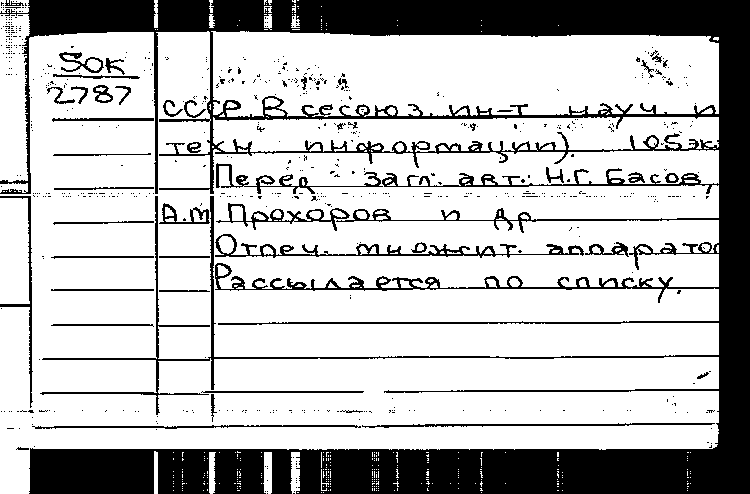 SOK
2787
СССР. Всесоюз. ин-т науч. и
техн информации). 105эк
Перед загл. авт.: Н.Г. Басов,
А.М Прохоров и др
Отпеч. множит. аппарато
Рассылается по списку.